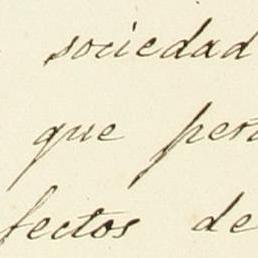 sociedad
que pert
fectos de